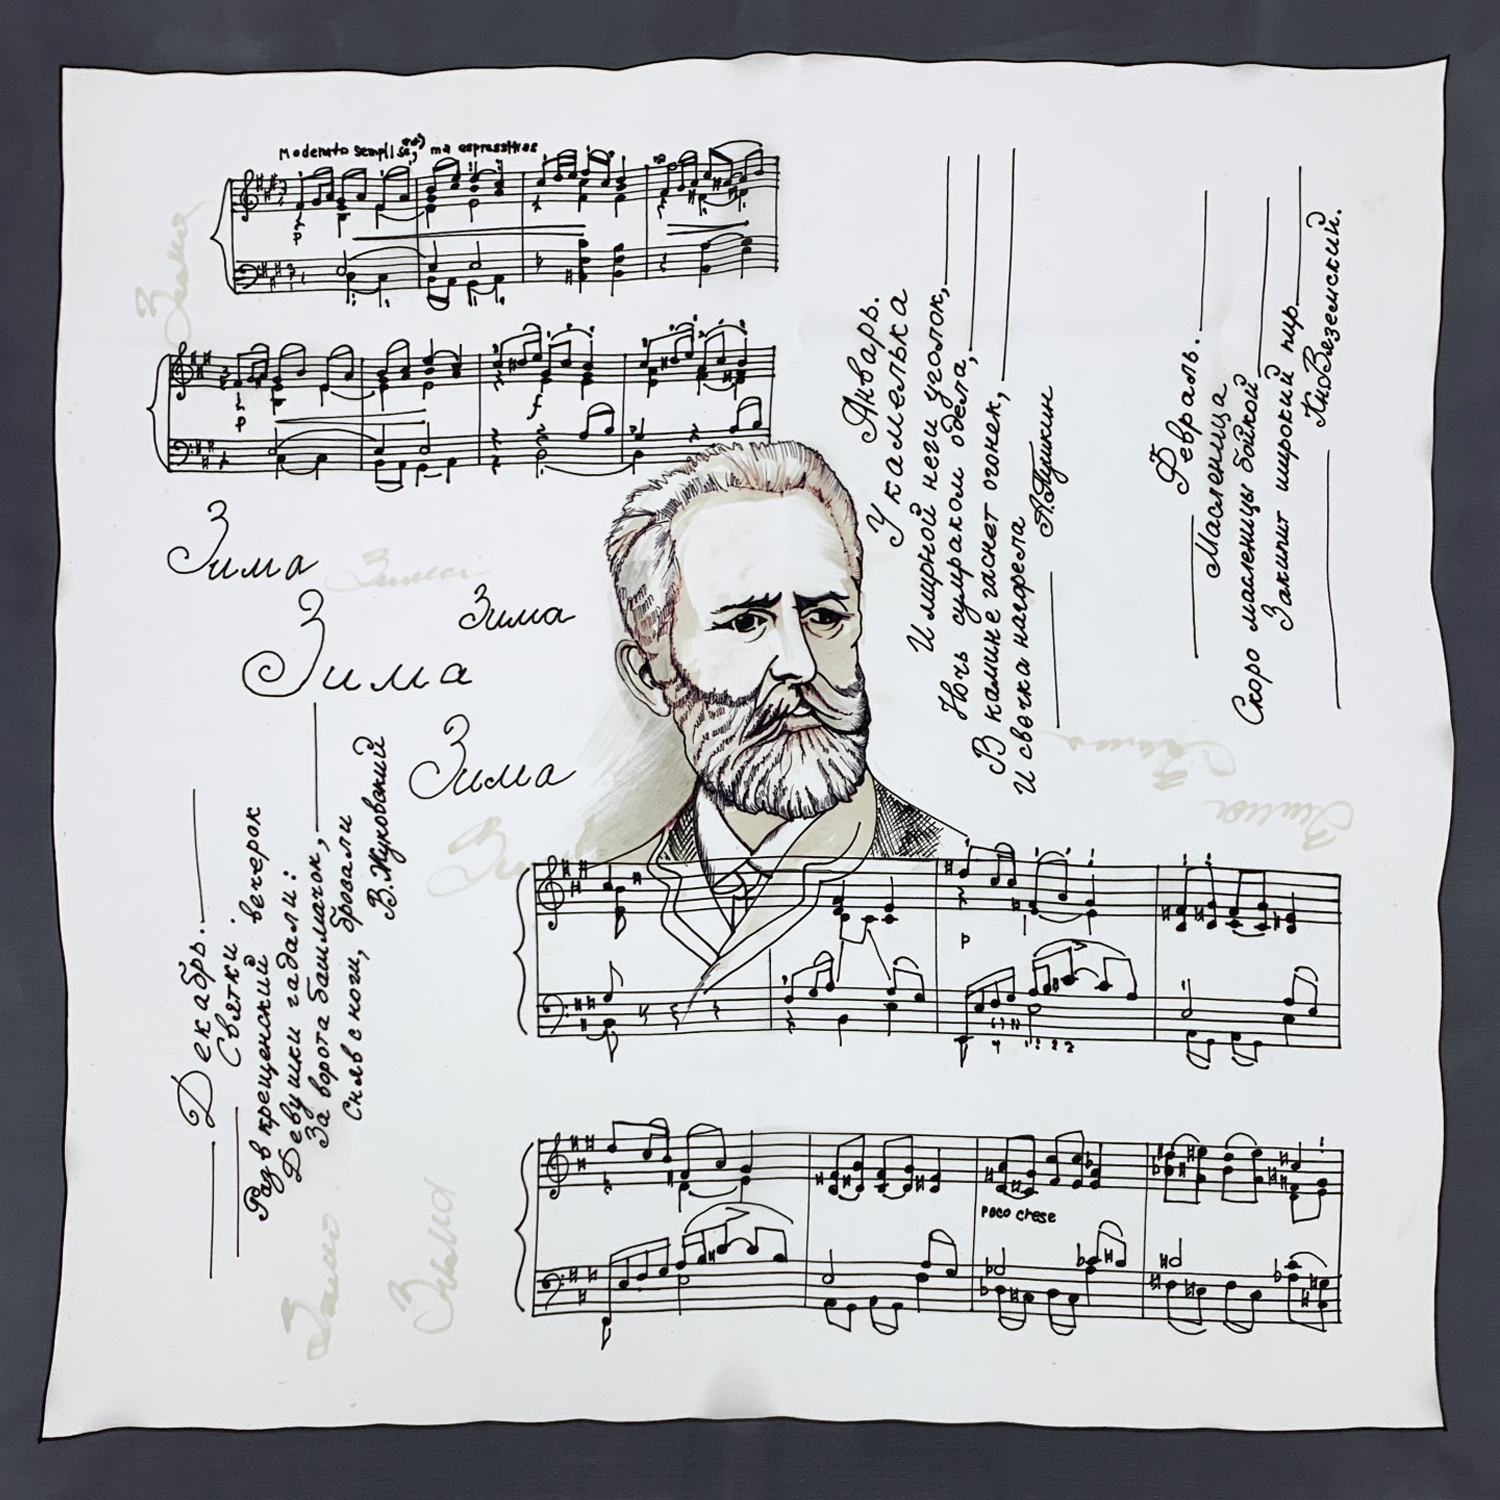 Moderato semplise, ma espressttvos
p
p
f
Зима
Зима
Зима
Зима
Зима
Зима
Январь.
У камелька
И мирной неги уголок,
Ночь сумраком одела,
В камине гаснет огонек,
И свечка нагорела
А.Пушкин
Февраль.
Масленица
Скоро масленицы бойкой
Закипит широкий пир.
Кн.Вяземский.
Зима
Зима
Зима
Декабрь.
Святки.
Раз в крещенский вечерок
Девушки гадали:
За ворота башмачок,
Сняв с ноги, бровали
В.Жуковский
p
4 1 2 2
poco crese
Зима
Зима